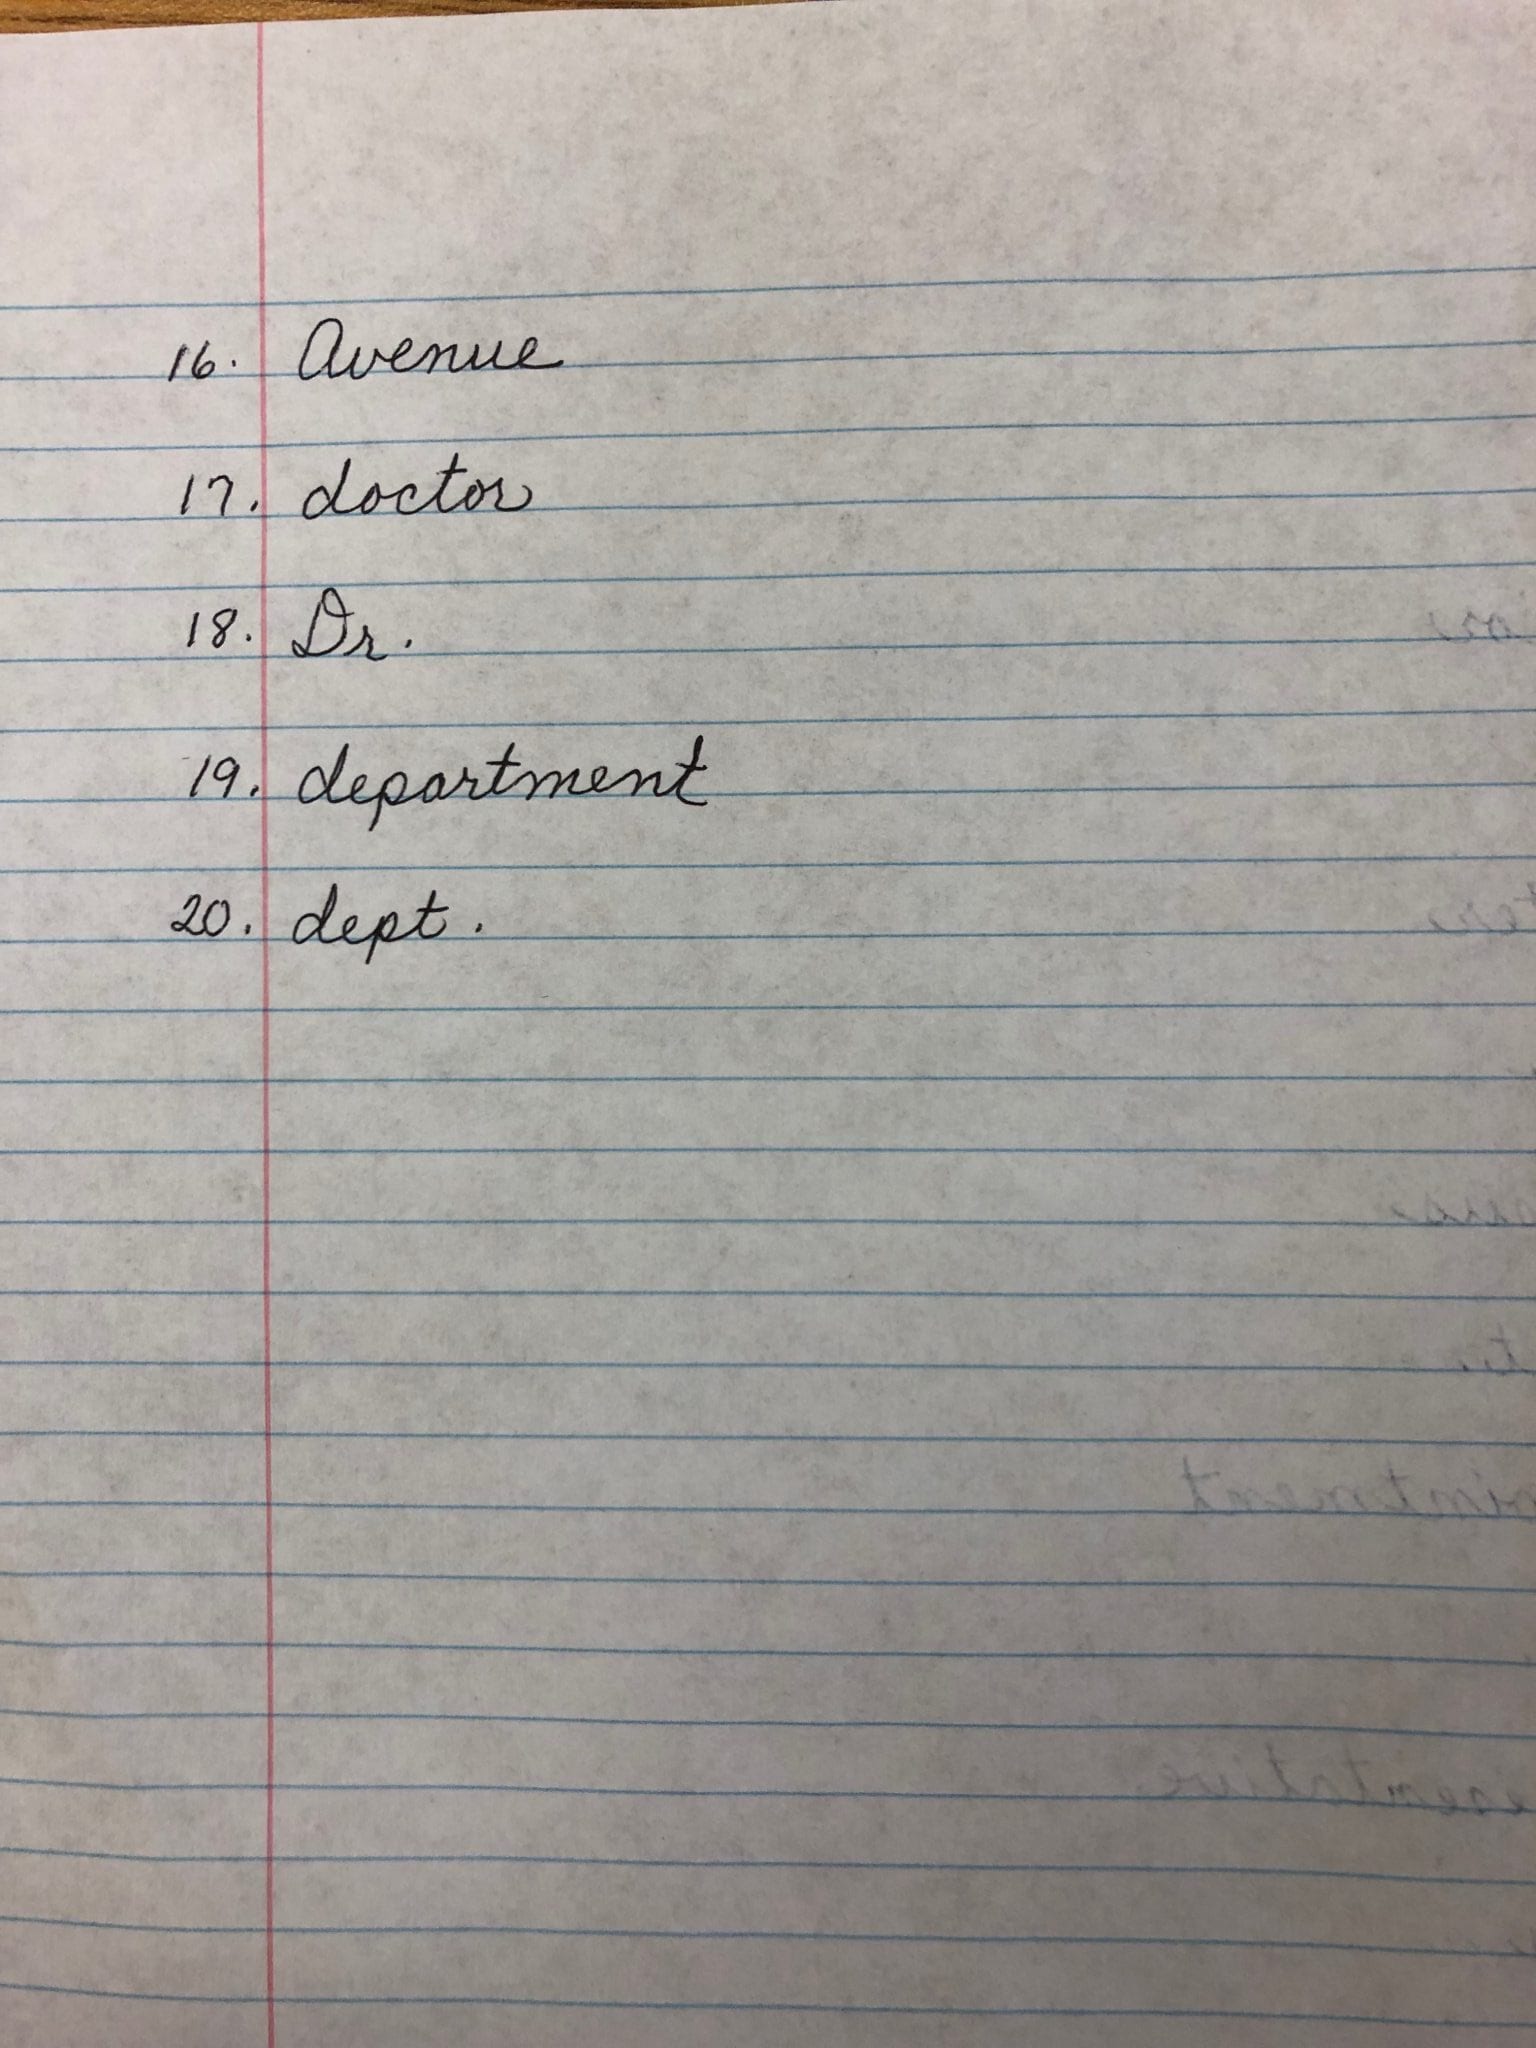 16. Avenue
17. doctor
18. Dr.
19. department
20. dept.